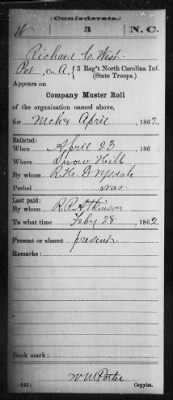 Confederate.
W 3 N.C.
Richard C. West
Pvt, Co. A, { 3 Reg't North Carolina Inf.
(State Troops.)
Appears on
Company Muster Roll
of the organization named above,
for Mch & April, 1862.
Enlisted:
When April 23, 1862
Where Snow Hill
By whom R. H. Drysdale
Period war
Last paid:
By whom R. P. Atkinson
To what time Feby 28, 1862.
Present or absent present
Remarks:
Book mark:
W M Porter
(642) Copyist.